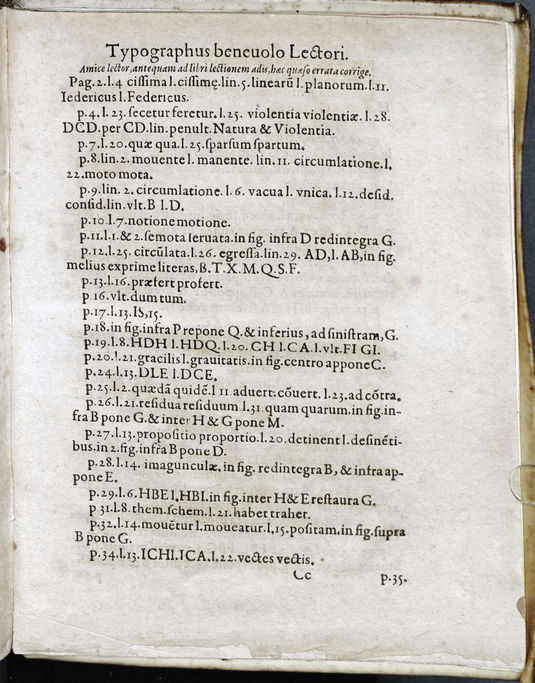 Typographus beneuolo Lectori.
Amice lector, antequam ad libri lectionem adis, hæc quæso errata corrige.
Pag. 2. l. 4 cissima l. cissimę. lin. 5. linearũ l. planorum. l. 11.
Iedericus l. Federicus.
p. 4. l. 23. secetur feretur. l. 25. violentia violentiæ. l. 28.
DCD. per CD. lin. penult. Natura & Violentia.
p. 7. l. 20. quæ qua. l. 25. sparsum spartum.
p. 8. lin. 2. mouente l. manente. lin. 11. circumlatione. l.
22. moto mota.
p. 9. lin. 2. circumlatione. l. 6. vacua l. vnica. l. 12. desid.
consid. lin. vlt. B l. D.
p. 10. l. 7. notione motione.
p. 11. l. 1. & 2. semota seruata. in fig. infra D redintegra G.
p. 12. l. 25. circũlata. l. 26. egressa. lin. 29. AD, l. AB, in fig.
melius exprime literas, B. T. X. M. Q. S. F.
p. 13. l. 16. præfert profert.
p 16. vlt. dum tum.
p. 17. l. 13. IS, 15.
p. 18. in fig. infra P repone Q. & inferius, ad sinistram, G.
p. 19. l. 8. HDH l. HDQ. l. 20. CH l. CA. l. vlt. FI GI.
p. 20. l. 21. gracilis l. grauitatis. in fig. centro appone C.
p. 24. l. 13. DLE l. DCE.
p. 25. l. 2. quædã quidẽ. l 11 aduert: cõuert. l. 23. ad cõtra.
p. 26. l. 21. residua residuum. l. 31. quam quarum. in fig. in-
fra B pone G. & inter H & G pone M.
p. 27. l. 13. propositio proportio. l. 20. detinent l. desinẽti-
bus. in 2. fig. infra B pone D.
p. 28. l. 14. imagunculæ. in fig. redintegra B, & infra ap-
pone E.
p. 29. l. 6. HBE l. HBI. in fig. inter H & E restaura G.
p 31. l. 8. them. schem. l. 21. habet traher.
p. 32. l. 14. mouẽtur l. moueatur. l, 15. positam. in fig. supra
B pone G.
p. 34. l. 13. ICH l. ICA. l. 22. vectes vectis.
Cc
p. 35.